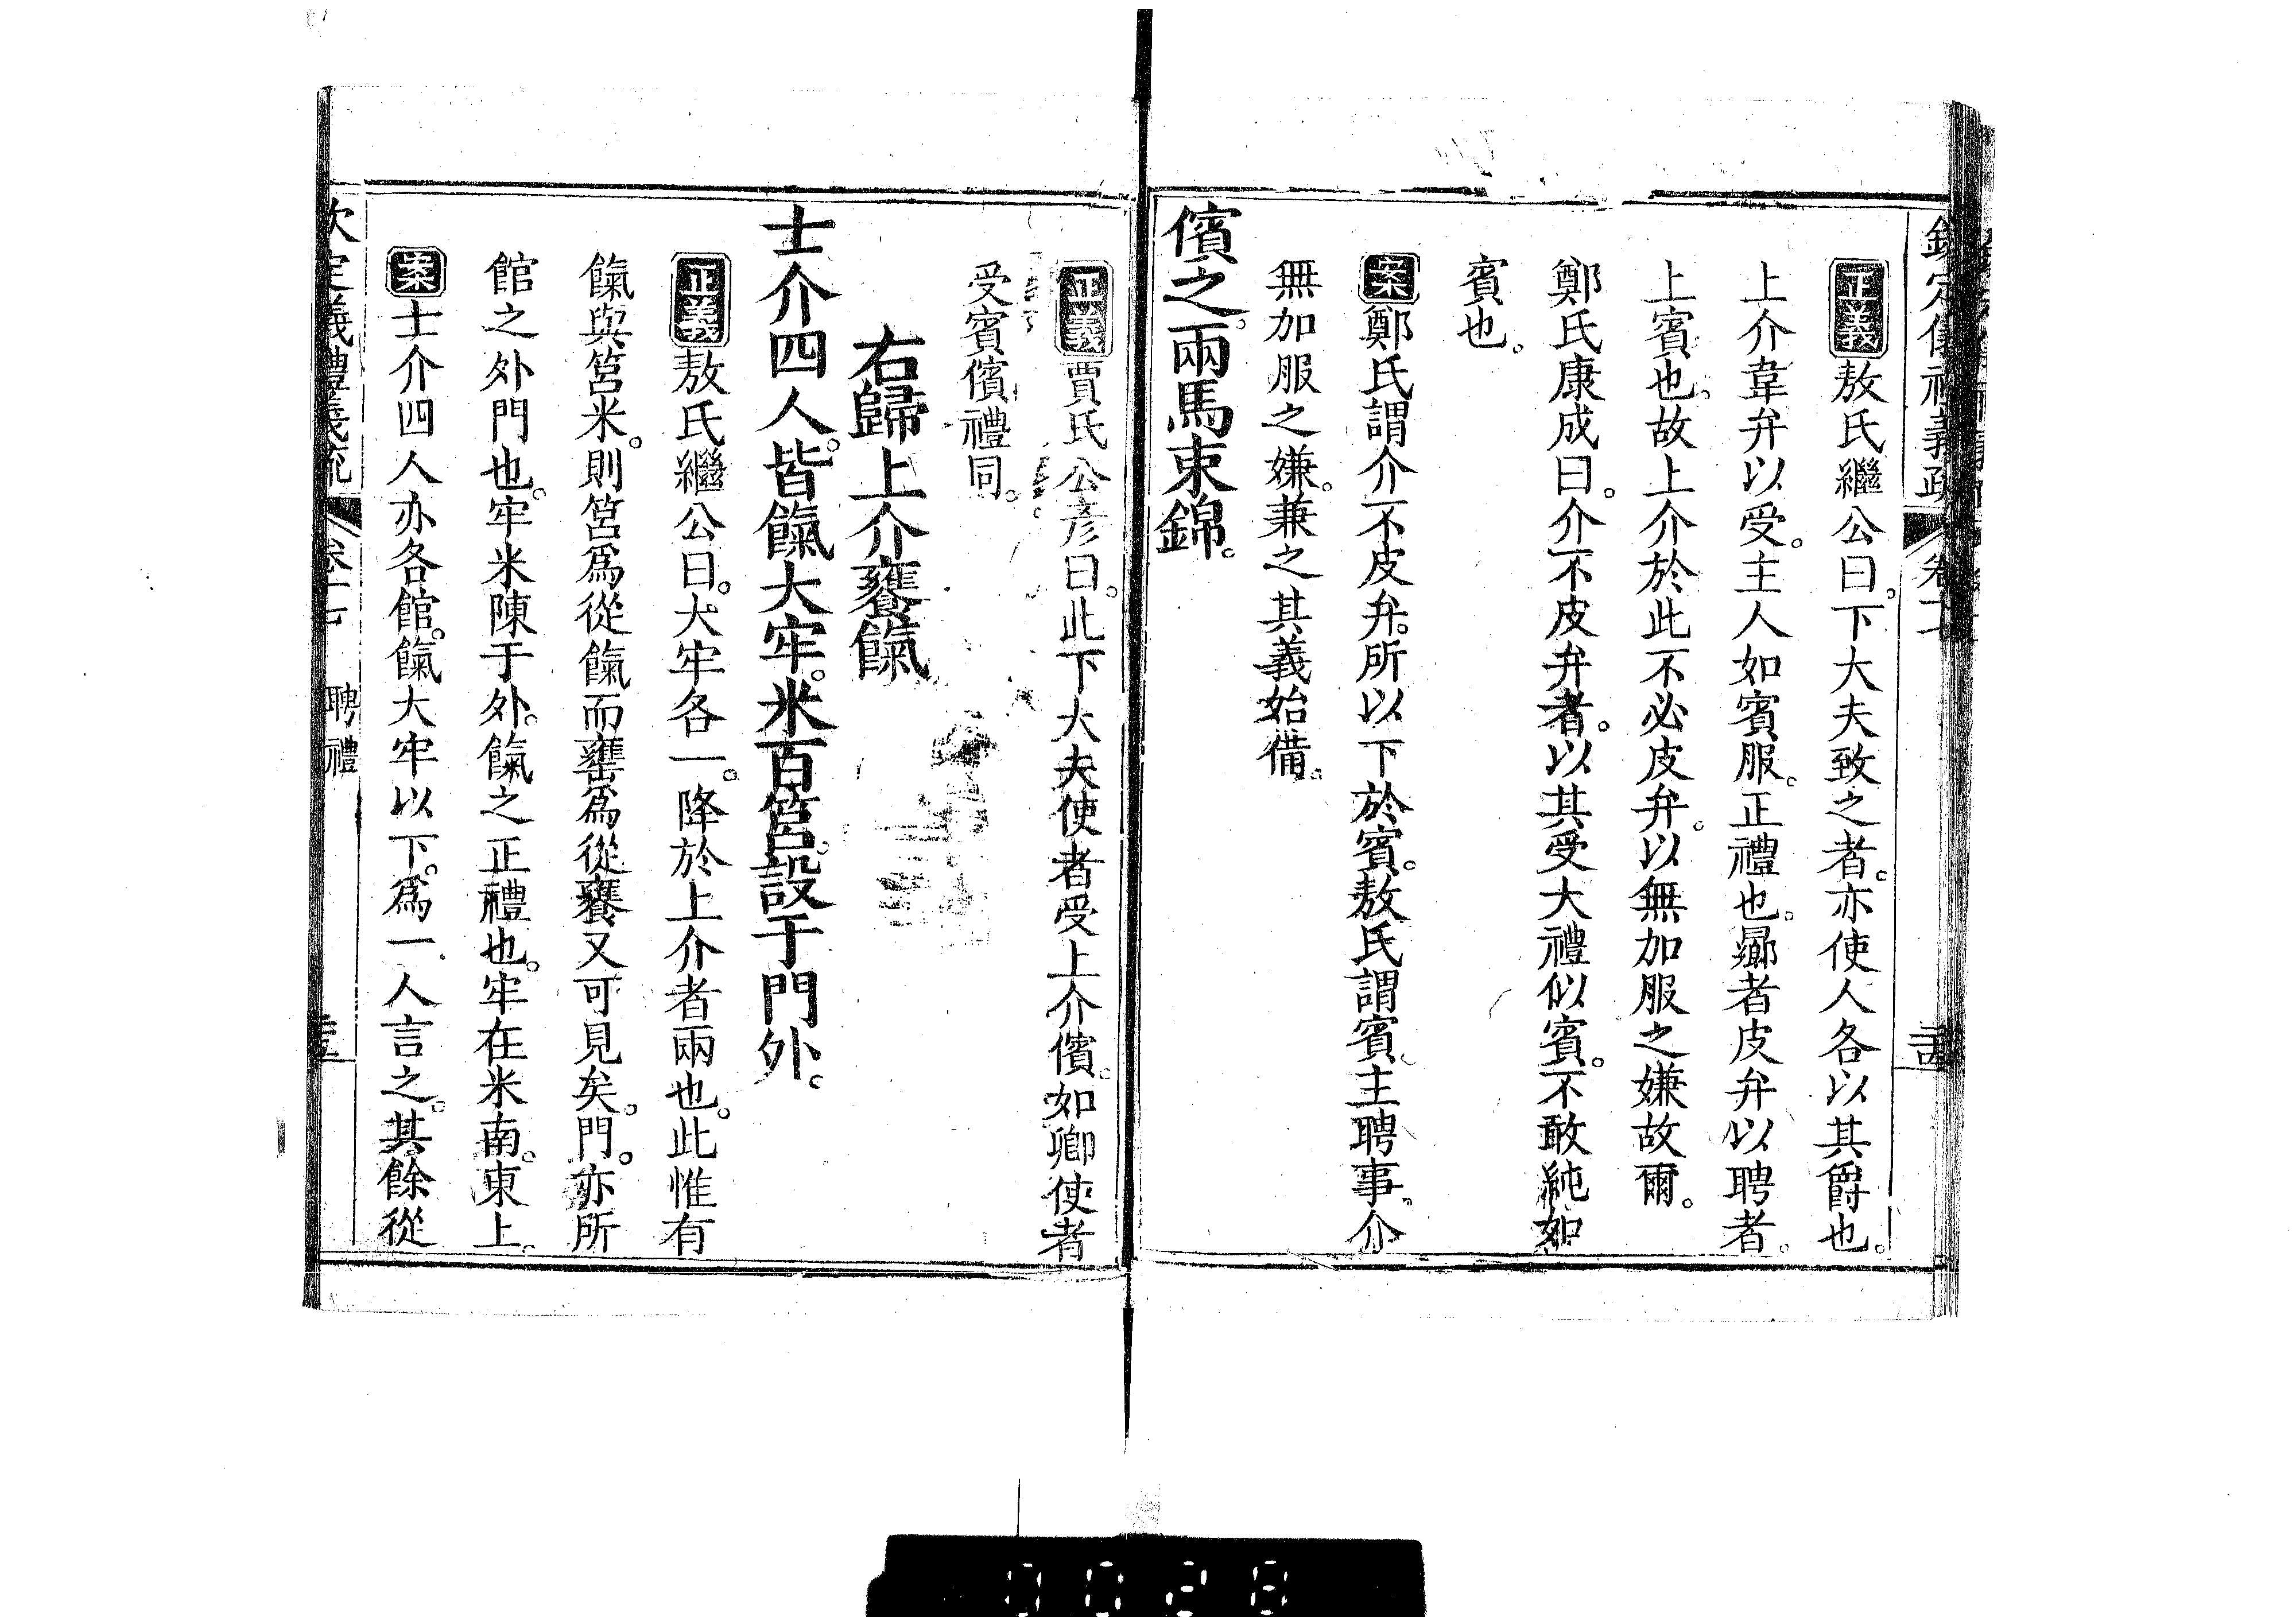 欽定儀禮義疏　卷十七
正義敖氏繼公曰。下大夫致之者。亦使人各以其爵也。
上介韋弁以受。主人如賓服。正禮也。曏者皮弁以聘者。
上賓也。故上介於此不必皮弁。以無加服之嫌故爾。
鄭氏康成曰。介不皮弁者。以其受大禮似賓。不敢純如
賓也。
案鄭氏謂介不皮弁。所以下於賓。敖氏謂賓、主聘事、介
無加服之嫌。兼之其義始備。
儐之。兩馬束錦。
正義賈氏公彥曰。此下大夫使者受上介儐。如卿使者
受賓儐禮同。
右歸上介饔餼
士介四人。皆餼大牢。米百筥。設于門外。
正義敖氏繼公曰。大牢各一。降於上介者兩也。此惟有
餼與筥米。則筥爲從餼而罋爲從饔又可見矣。門。亦所
館之外門也。牢米陳于外。餼之正禮也。牢在米南。東上。
案士介四人亦各館。餼大牢以下。爲一人言之。其餘從
欽定儀禮義疏　卷十七　聘禮
0028